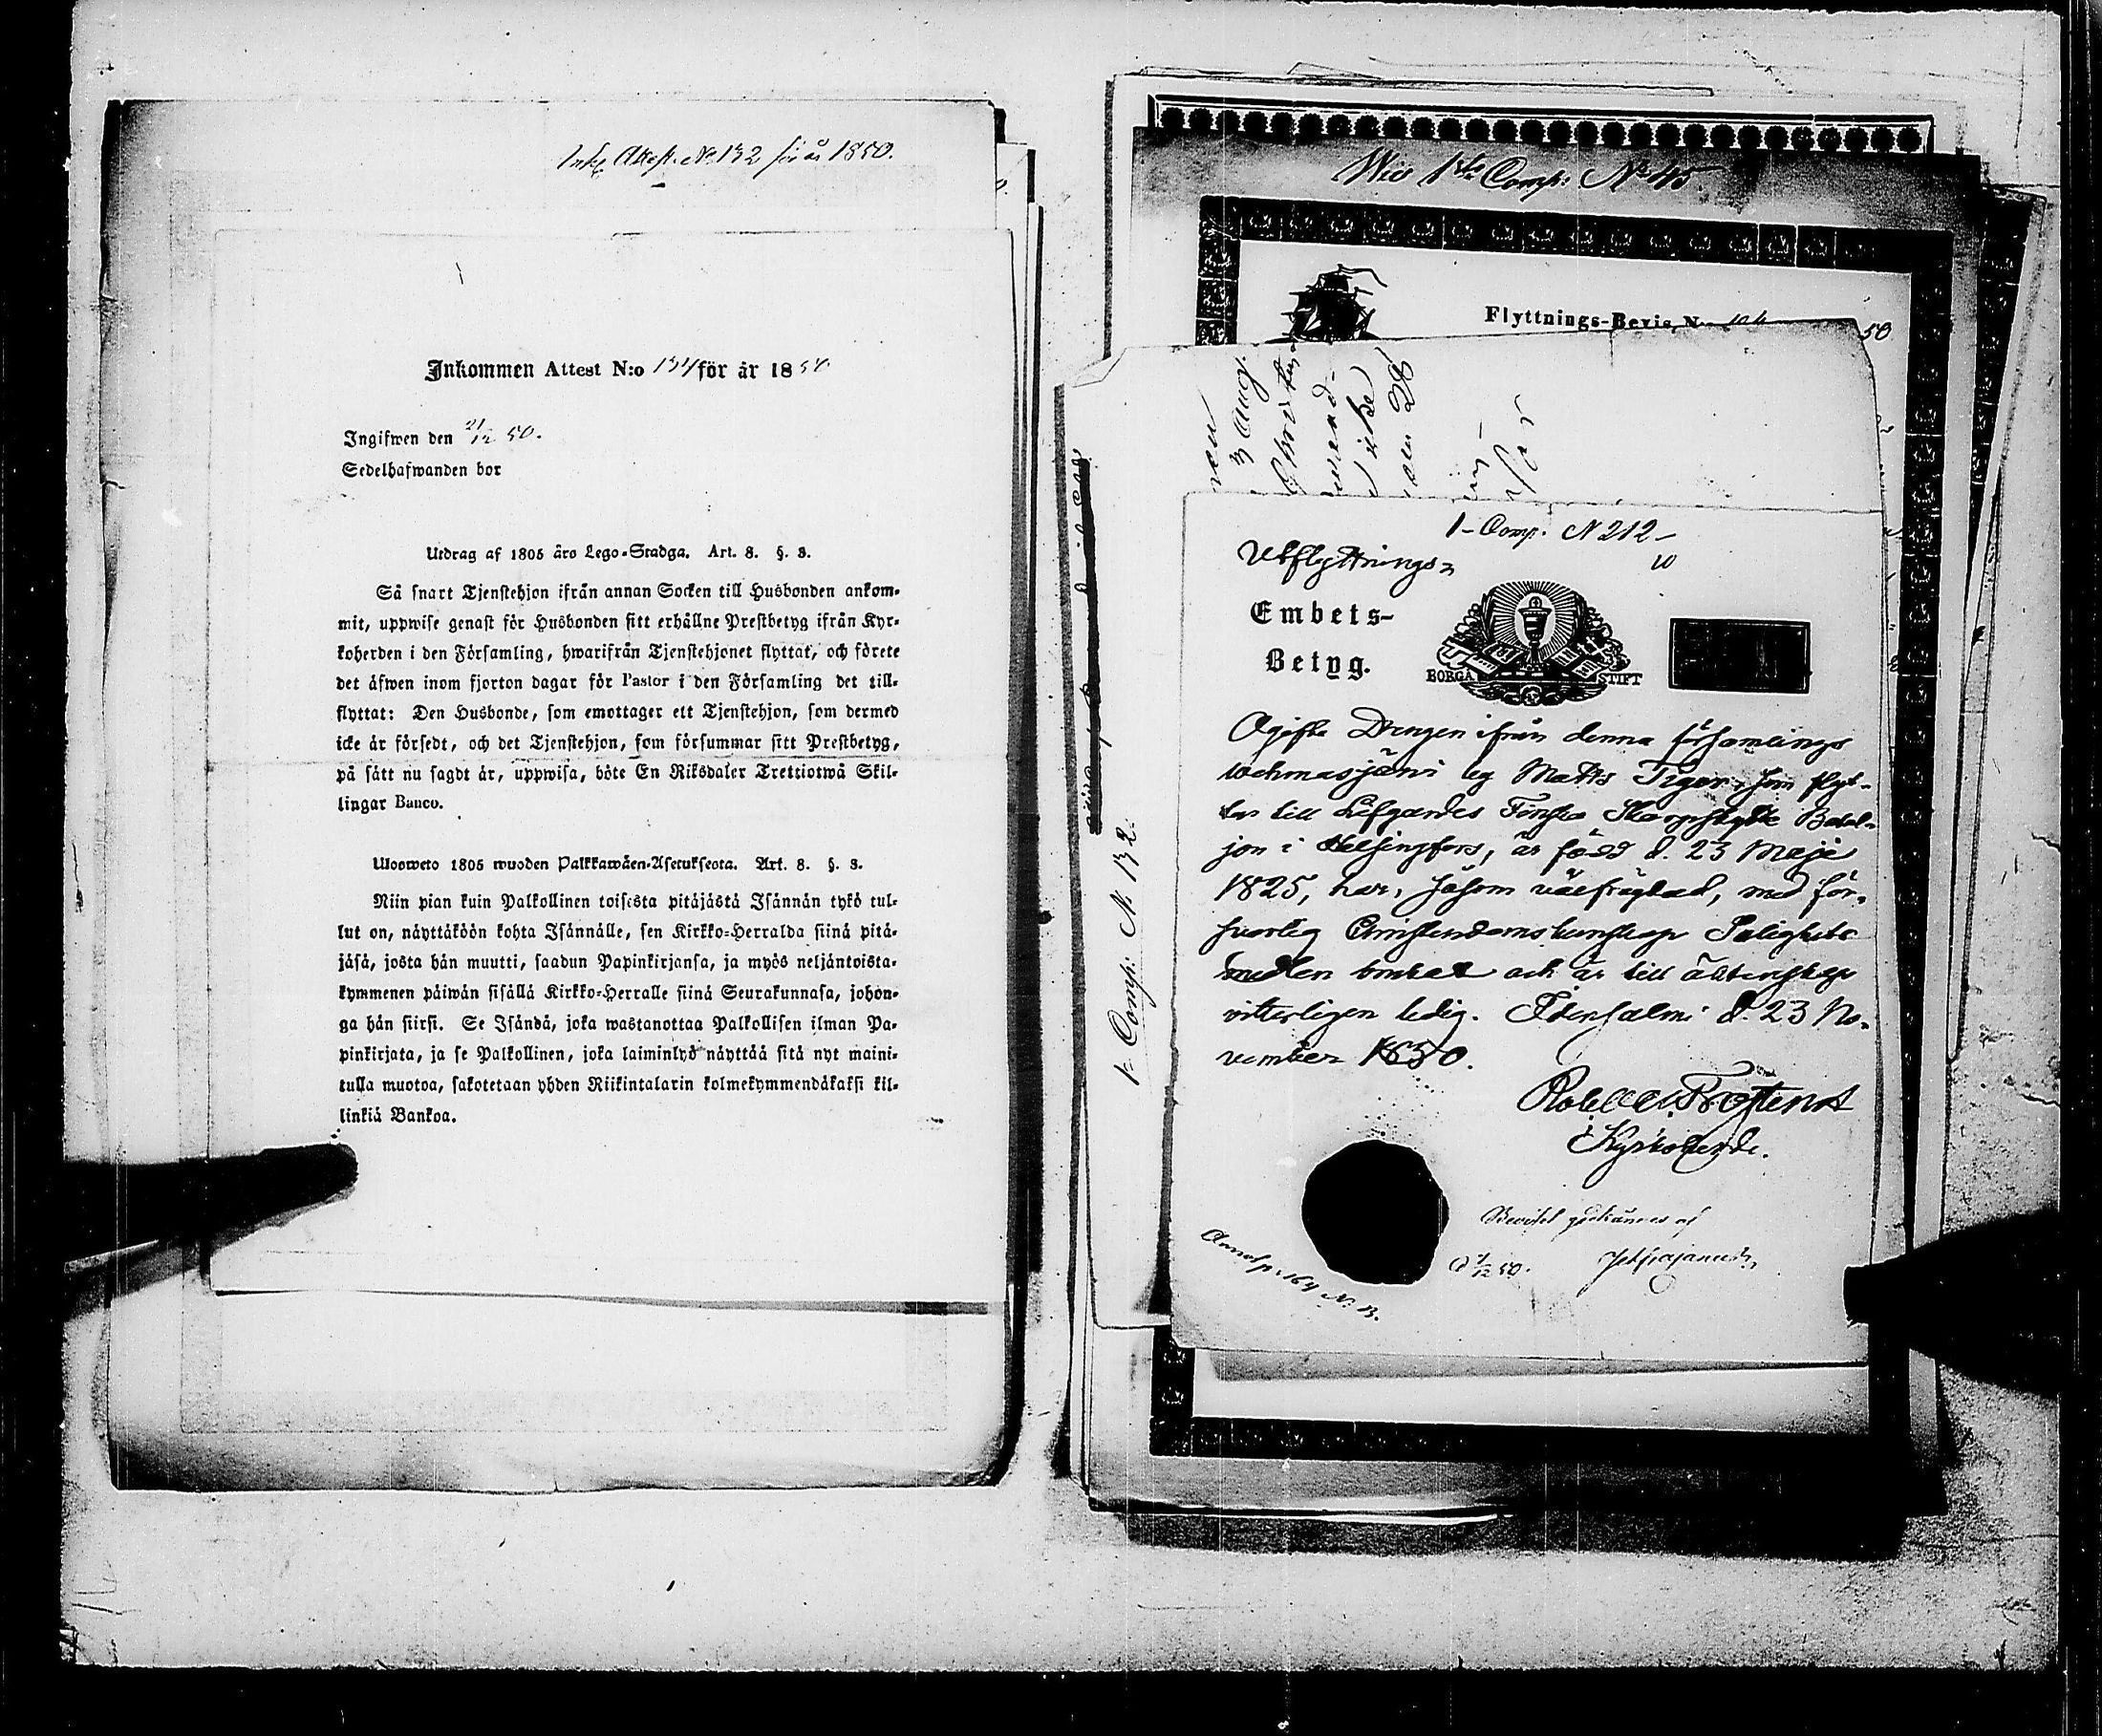 Inkc Attest. No 132 för år 1850.
Inkommen Attest N:o 134 för år 1850
Ingifwen den 21/12 50.
Sedelhafwanden bor
Utdrag af 1805 års Lego-Stadga. Art. 8. §. 3.
Så snart Tjenstehjon ifrån annan Socken till Husbonden ankom-
mit, uppwise genast för Husbonden sitt erhållne Prestbetyg ifrån Kyr-
koherden i den Församling, hwarifrån Tjenstehjonet flyttat, och förete
det äfwen inom fjorton dagar för Pastor i den Församling det till-
flyttat: Den Husbonde, som emottager ett Tjenstehjon, som dermed
icke är försedt, och det Tjenstehjon, som försummar sitt Prestbetyg,
på sätt nu sagdt är, uppwisa, böte En Riksdaler Trettiotwå Skil-
lingar Banco.
Ulosweto 1805 wuoden Palkkawäen-Asetuksesta. Art. 8. §. 3.
Niin pian kuin Palkollinen toisesta pitäjästä Isännän tykö tul-
lut on, näyttäköön kohta Isännälle, sen Kirkko-Herralda siinä pitä-
jäsä, josta hän muutti, saadun Papinkirjansa, ja myös neljäntoista-
kymmenen päiwän sisällä Kirkko-Herralle siinä Seurakunnasa, johon-
ga hän siirsi. Se Isändä, joka wastanottaa Palkollisen ilman Pa-
pinkirjata, ja se Palkollinen, joka laiminlyö näyttää sitä nyt maini-
tulla muotoa, sakotetaan yhden Riikintalarin kolmekymmendäkaksi kil-
linkiä Bankoa.
Wid 1sta Comp: No 45.
Flyttnings-Bevis N:o 104 50
1 Comp: No 132.
1 Comp. N 212
Utflyttnings
Embets-
Betyg.
BORGÅ STIFT
Ogifte Drengen ifrån denna församlings
wehmasjärvi by Matts Tiger, som flyt-
tar till Lifgardes Finska Skarpskytte Batal-
jon i Helsingfors, är född d. 23 Maji
1825, har, såsom välfrägdad, med för-
svarlig Christendomskunskap Salighets
medlen brukat och är till äktenskap
vitterligen ledig. Idensalmi d. 23 No-
vember 1850.
Kyrkoherde.
Beviset godkännes af
d 7/12 50.
Annot p. 164 No 13.